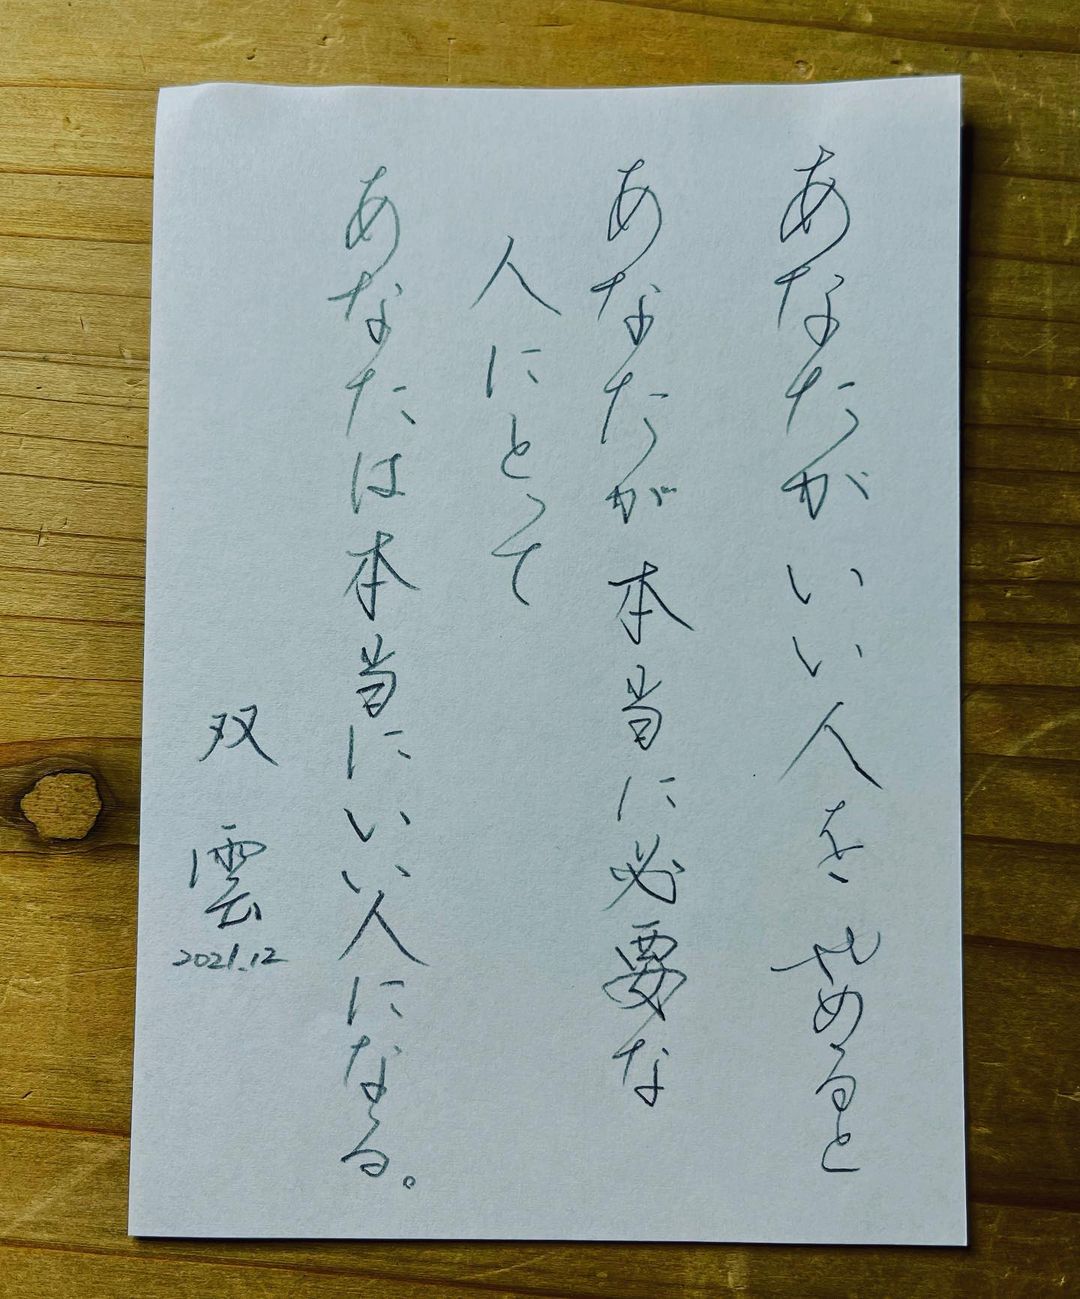 あなたがいい人を止めると
あなたが本当に必要な
人にとって
あなたは本当にいい人になる。
双雲
2021.12